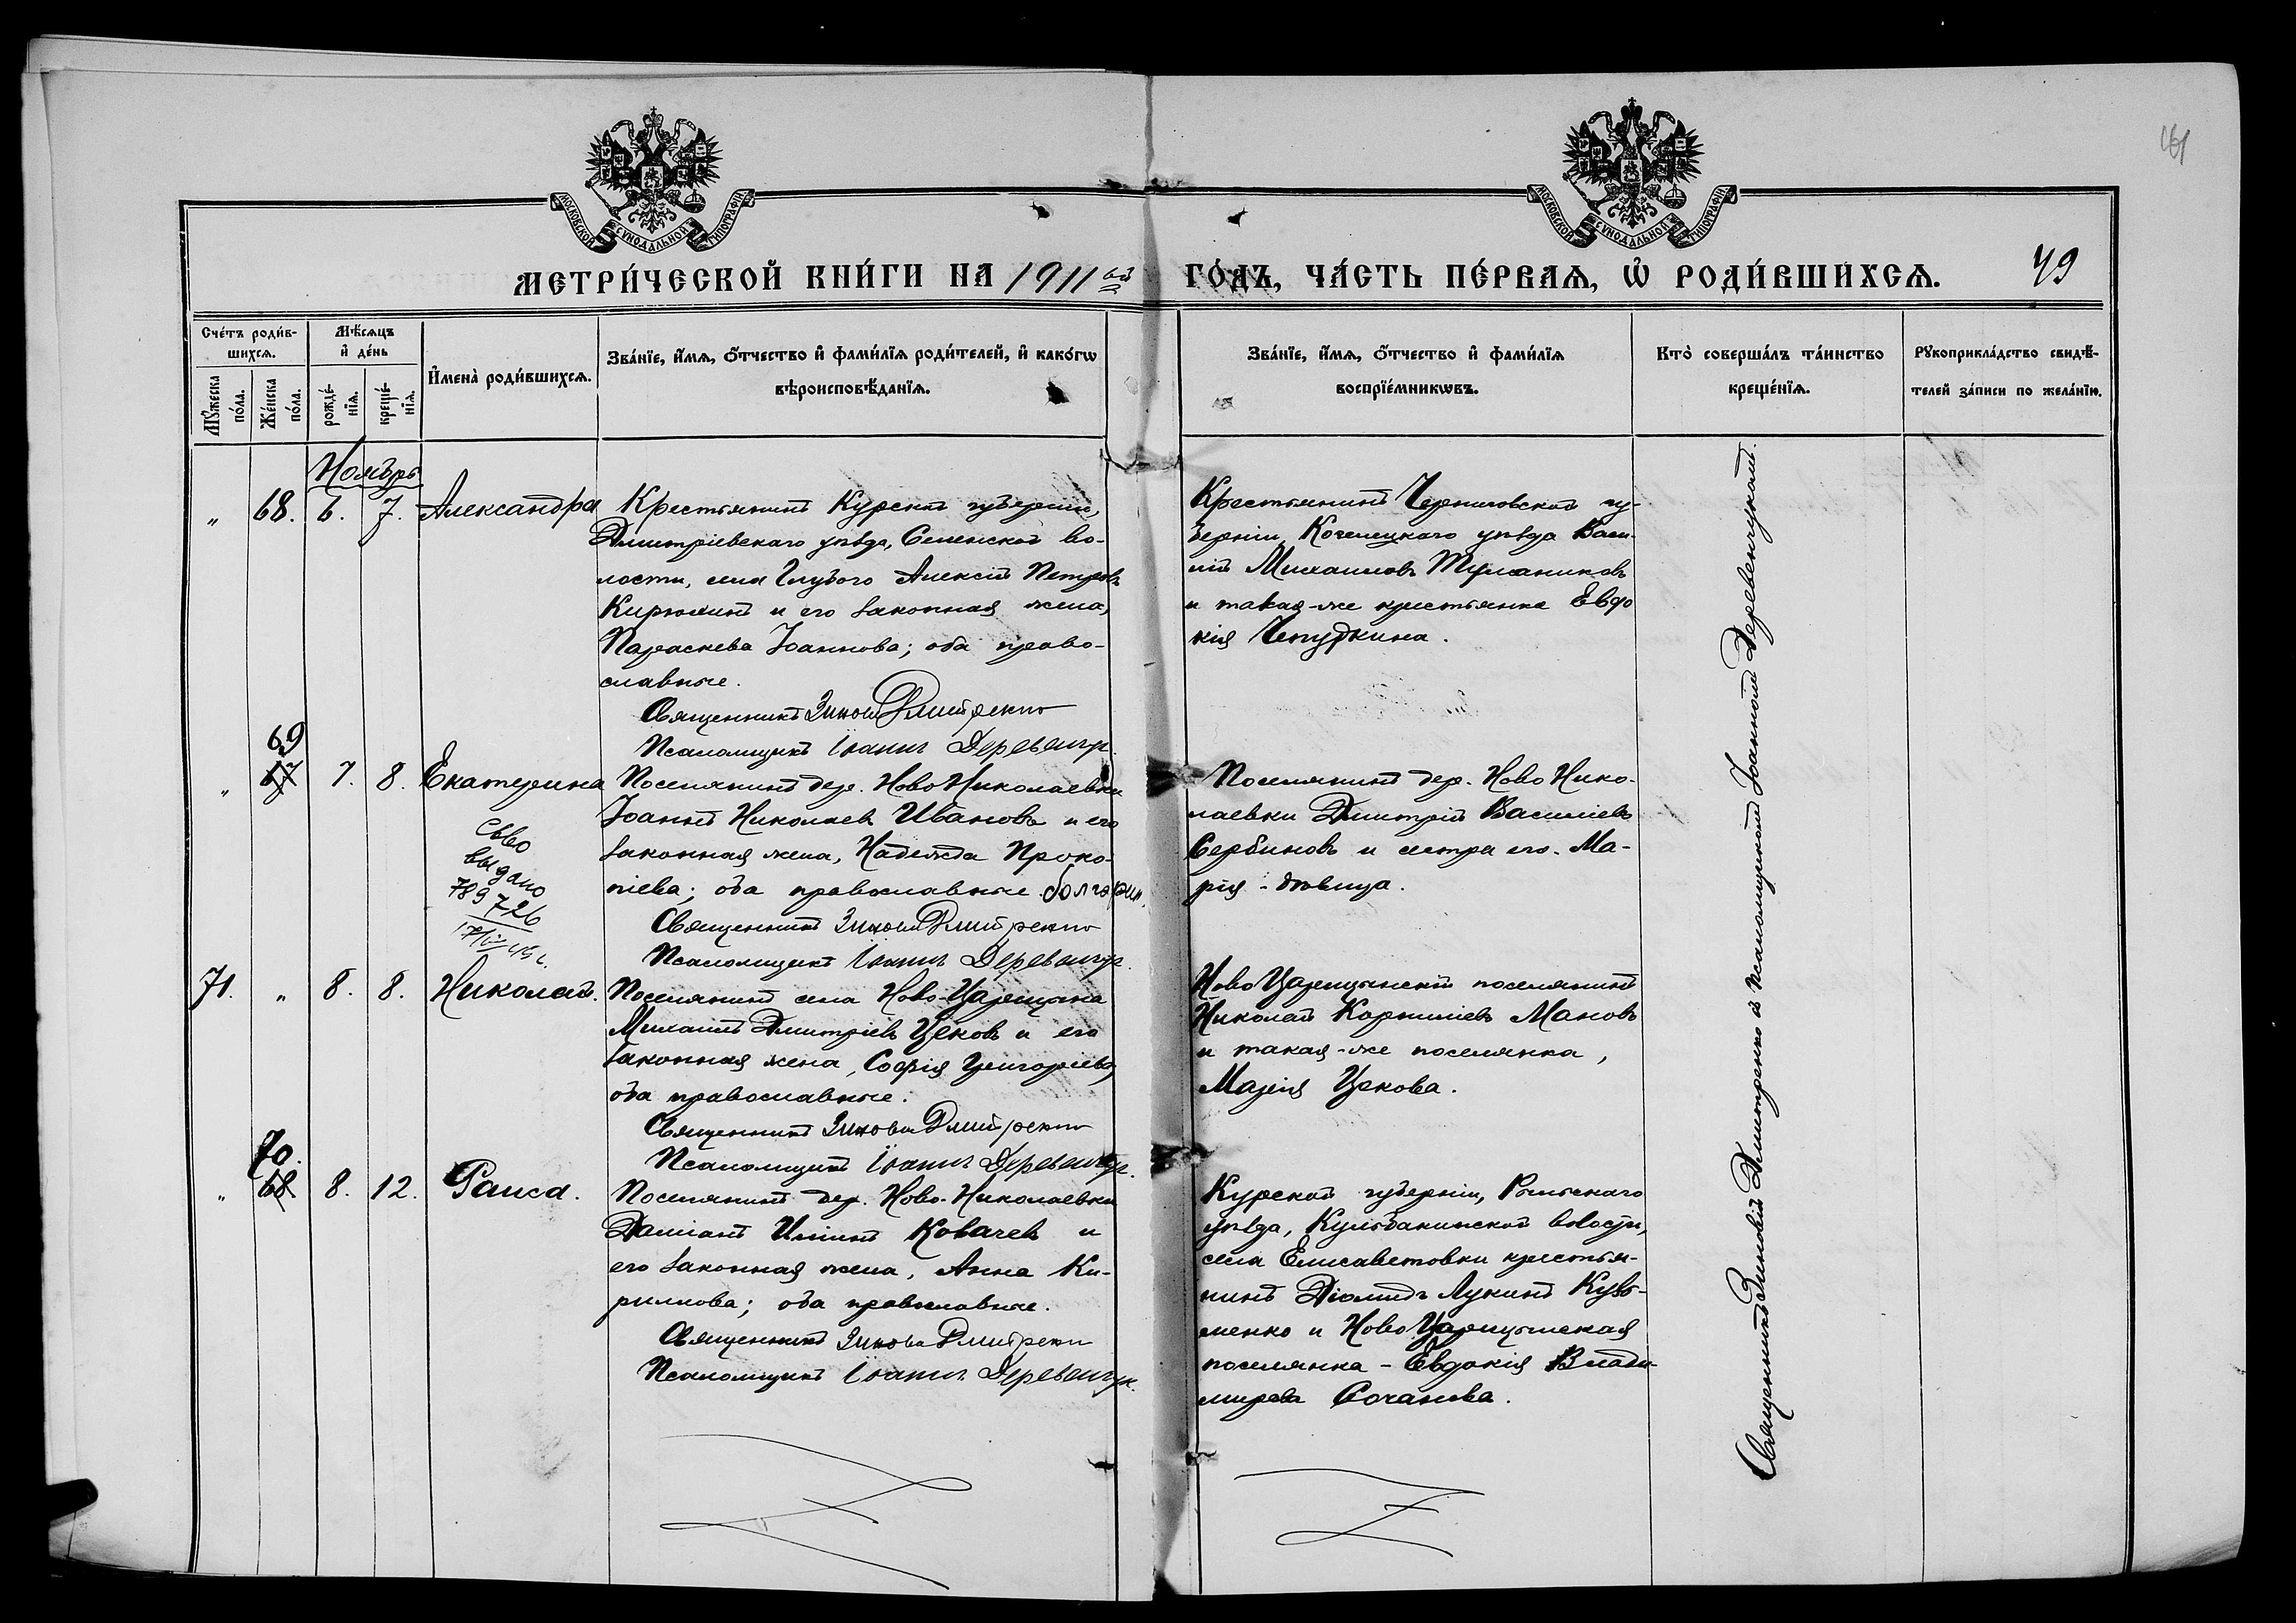 161
МОСКОВСКОЙ СУНОДАЛЬНОЙ ТИПОГРАФІИ
МОСКОВСКОЙ СУНОДАЛЬНОЙ ТИПОГРАФІИ
МЕТРИ́ЧЕСКОЙ КНИ́ГИ НА 1911ый ГО́ДЪ, ЧА́СТЬ ПЕ́РВАѦ, Ѡ҆ РОДИ́ВШИХСѦ. 49
Сче́тъ роди́в-
шихсѧ.
Мꙋ́жеска по́ла.
Же́нска по́ла.
Мѣ́сѧцъ и҆ де́нь
рожде́-
нїѧ.
креще́-
нїѧ.
И҆мена̀ роди́вшихсѧ.
Зва́нїе, и҆́мѧ, ѻ҆́тчество и҆ фами́лїѧ роди́телей, и҆ како́гѡ
вѣроисповѣ́данїѧ.
Зва́нїе, и҆́мѧ, ѻ҆́тчество и҆ фами́лїѧ
воспрїе́мникѡвъ.
Кто̀ соверша́лъ та́инство
креще́нїѧ.
Рꙋкоприкла́дство свидѣ́-
телей за́писи по жела́нїю.
Ноябрь
" 68. 6. 7. Александра
Крестьянинъ Курской губерніи,
Дмитріевскаго уѣзда, Селенской во-
лости, села Глубого Алексій Петровъ
Кирюхинъ и его законная жена,
Параскева Іоаннова; оба право-
славные.
Священникъ Зиновій Дмитренко
Псаломщикъ Іоаннъ Деревенчук.
Крестьянинъ Черниговской гу-
берніи, Козелецкого уѣзда Васи-
лій Михаиловъ
и такая-же крестьянка Евдо
кія
" 69 67 7. 8. Екатерина
Св-во
выдано
789726
Поселянинъ дер. Ново Николаевки
Іоаннъ Николаевъ Ивановъ и его
законная жена, Надежда Проко-
піева; оба православные. болгарин.
Священникъ Зиновій Дмитренко
Псаломщикъ Іоаннъ Деревенчук.
Поселянинъ дер. Ново Нико-
лаевки Дмитрій Василіевъ
Сербиновъ и сестра его Ма-
рія - дѣвица.
71. " 8. 8. Николай.
Поселянинъ села Ново-Царицына
Михаилъ Дмитріевъ Цековъ и его
законная жена, Софія Григоріева,
оба православные.
Священникъ Зиновій Дмитренко
Псаломщикъ Іоаннъ Деревенчук.
Ново Царицынскій поселянинъ
Николай Корниліевъ Мановъ
и такая-же поселянка,
Марія Цекова.
" 70. 68. 8. 12. Раиса.
Поселянинъ дер. Ново-Николаевки
Даміанъ Иліинъ Ковачевъ и
его законная жена, Анна Ки-
рилова; оба православные.
Священникъ Зиновій Дмитренко
Псаломщикъ Іоаннъ Деревенчук.
Курской губерніи, Рыльскаго
уѣзда, Кульбакинской волости,
села Елисаветовки крестья-
нинъ Діомидъ Лукинъ Кузь-
менко и Ново Царицынская
поселянка - Евдокія Влади-
мирова Сочанова.
Священникъ Зиновій Дмитренко съ псаломщикомъ Іоанномъ Деревенчукомъ.